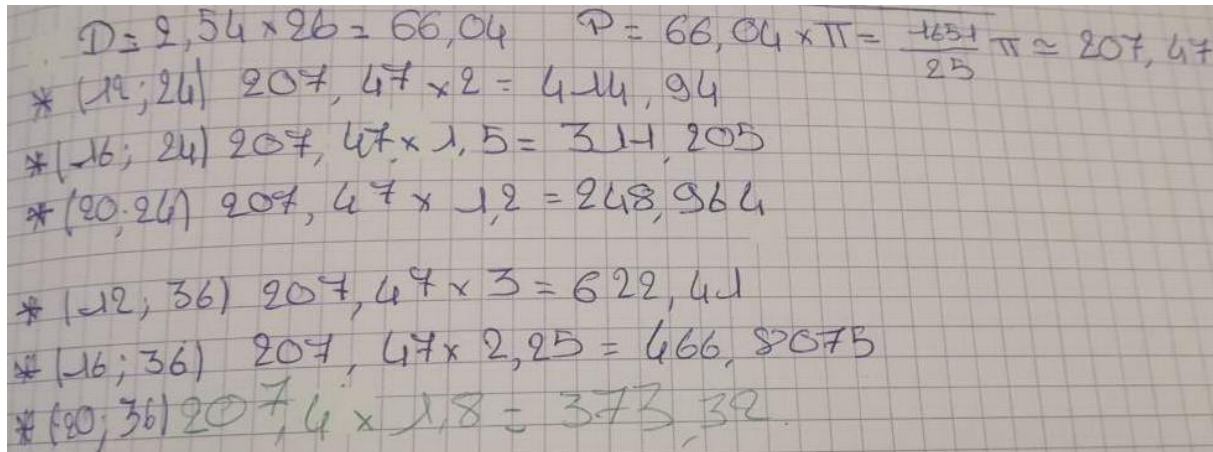 D = 2,54 × 26 = 66,04 P = 66,04 × π = 1651/25 π ≃ 207,47
* (12 ; 24) 207,47 × 2 = 414,94
* (16 ; 24) 207,47 × 1,5 = 311,205
* (20 ; 24) 207,47 × 1,2 = 248,964
* (12 ; 36) 207,47 × 3 = 622,41
* (16 ; 36) 207,47 × 2,25 = 466,8075
* (20 ; 36) 207,4 × 1,8 = 373,32